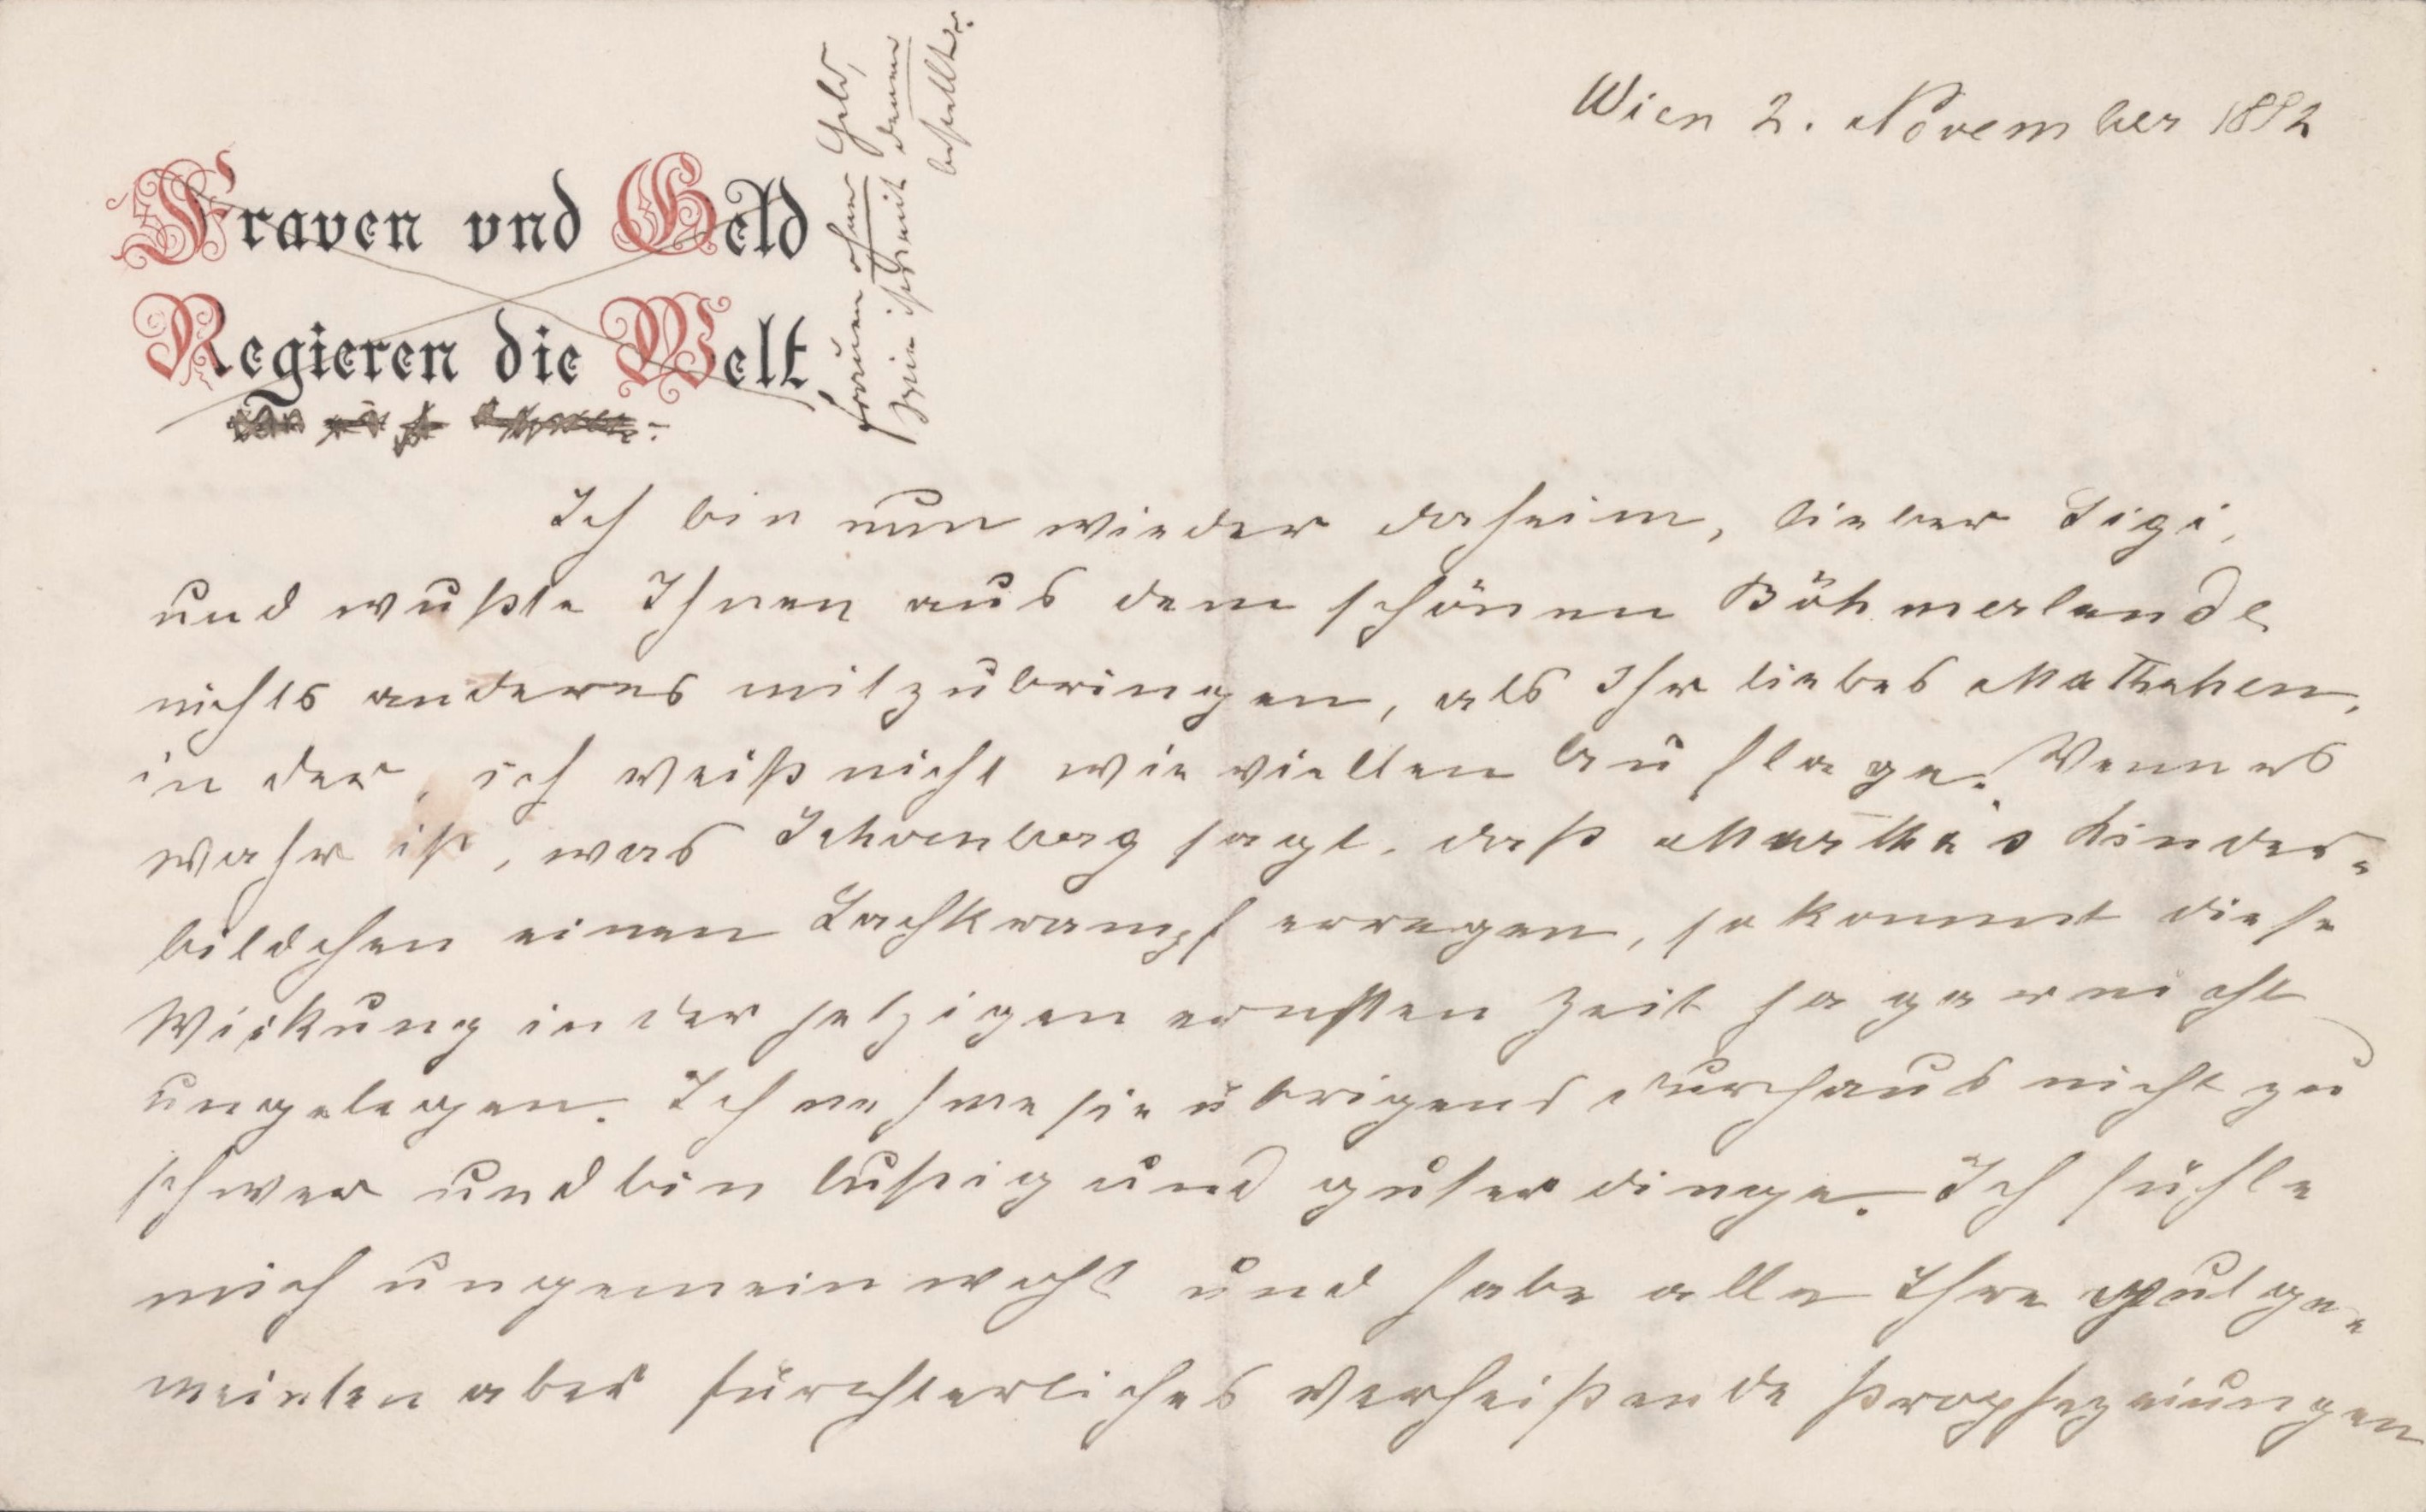 Wien 2. November 1882
Frauen ohne Geld,
wie ist's mit denen
bestellt?
Fraven vnd Geld
Regieren die Welt
Ich bin nun wieder daheim, lieber Sigi,
und wußte Ihnen aus dem schönen Böhmerlande
nichts anderes mitzubringen, als Ihr liebes
in der, ich weiß nicht wie vielten Auflage. Wenn es
wahr ist, was Schönberg sagt, daß Martha's Kinder-
bildchen einen Lachkrampf erregen, so kommt diese
Wirkung in der jetzigen ernsten Zeit ja gar nicht
ungelegen. Ich nehme sie übrigens durchaus nicht zu
schwer und bin lustig und guter dinge. Ich fühle
mich ungemein wohl und habe alle Ihre gutge-
meinten aber fürchterliches verheißende Prophezeiungen